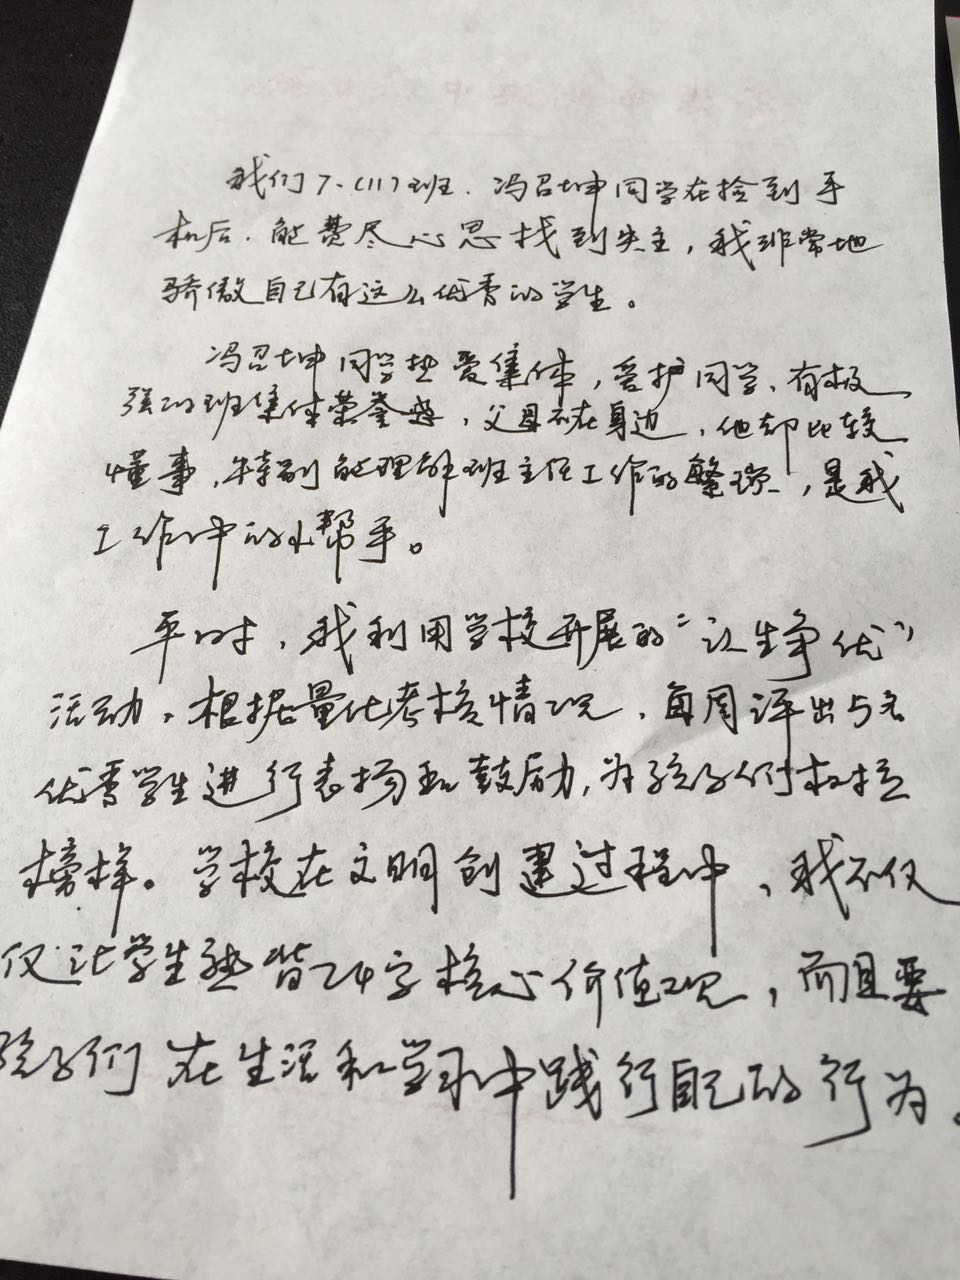 我们7.(11)班.冯召坤同学在捡到手
机后.能费尽心思找到失主,我非常地
骄傲自己有这么优秀的学生。
冯召坤同学热爱集体,爱护同学,有极
强的班集体荣誉感,父母不在身边,他却比较
懂事,特别能理解班主任工作的繁琐,是我
工作中的小帮手。
平时,我利用学校开展的“让生争优”
活动,根据量化考核情况,每周评出5名
优秀学生进行表扬和鼓励,为孩子们树立
榜样。学校在文明创建过程中,我不仅
仅让学生熟背24字核心价值观,而且要
孩子们在生活和学习中践行自己的行为。